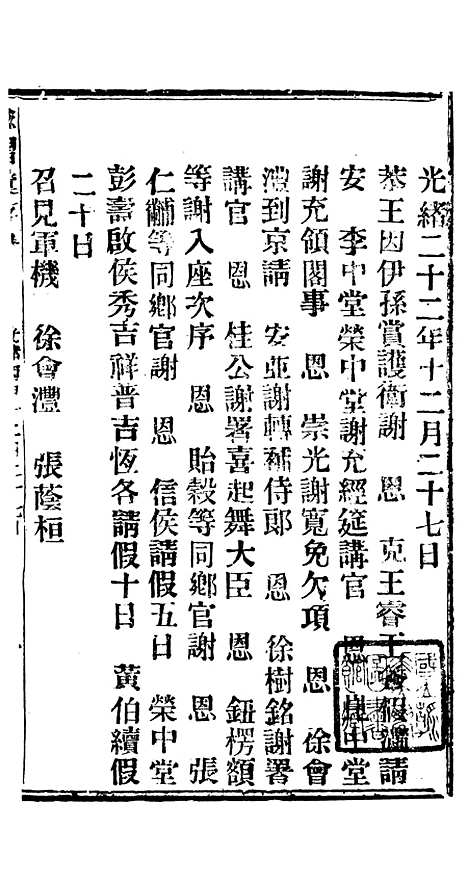 光緒二十二年十二月二十七日
恭王因伊孫賞護衛謝　恩　克王睿王　假滿請
安　李中堂榮中堂謝充經筵講官　恩　中堂
謝充領閣事　恩　崇光謝寬免欠項　恩　徐會
灃到京請　安並謝轉補侍郎　恩　徐樹銘謝署
講官　恩　桂公謝署喜起舞大臣　恩　鈕楞額
等謝入座次序　恩　貽穀等同鄉官謝　恩　張
仁黼等同鄉官謝　恩　信侯請假五日　榮中堂
彭壽啟侯秀吉祥普吉恆各請假十日　黃伯續假
二十日
召見軍機　徐會灃　張蔭桓